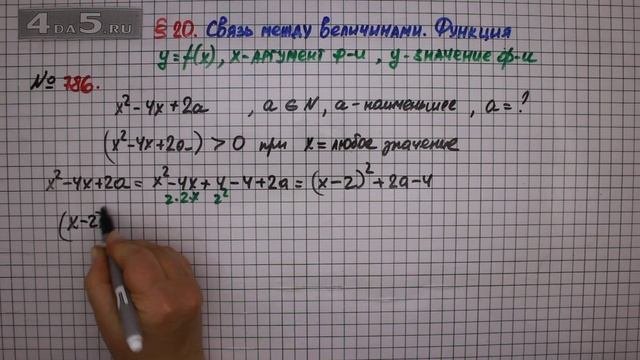 4DA5.RU
§ 20. Связь между величинами. Функция
y=f(x), x-аргумент ф-и, y-значение ф-и
№ 786.
x²-4x+2a , a ∈ N, a-наименьшее, a=?
(x²-4x+2a) > 0 при x=любое значение
x²-4x+2a = x²-4x+4-4+2a = (x-2)²+2a-4
2·2·x 2²
(x-2)